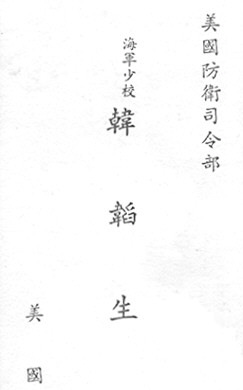 美國防衛司令部
海軍少校
韓韜生
美國